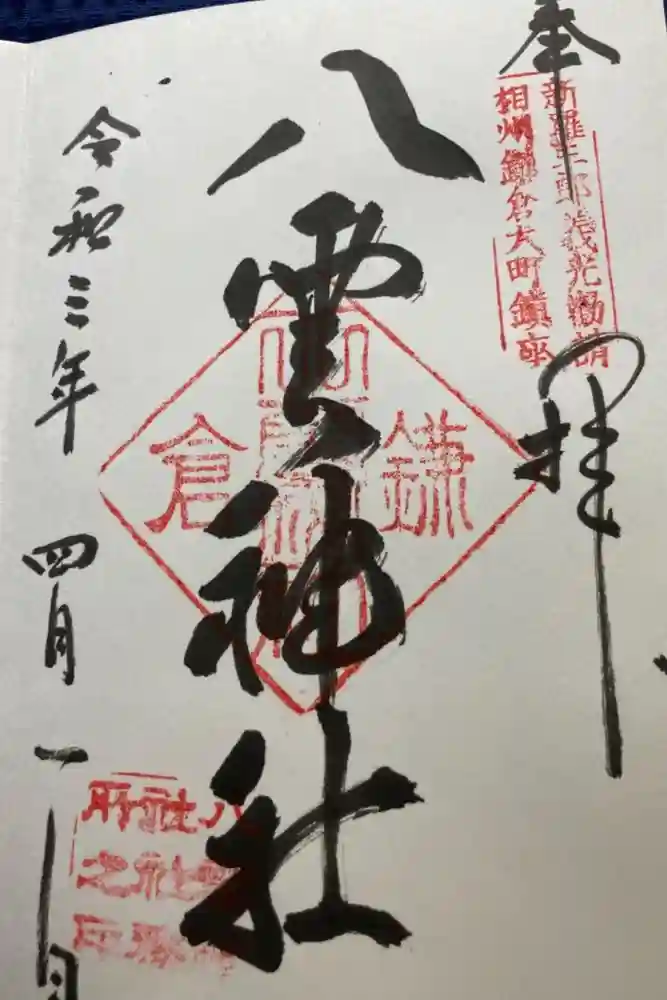 奉拝
新羅三郎義光勧請
相州鎌倉大町鎮座
八雲神社
鎌倉
令和三年 四月 一日
八雲神社社務所之印